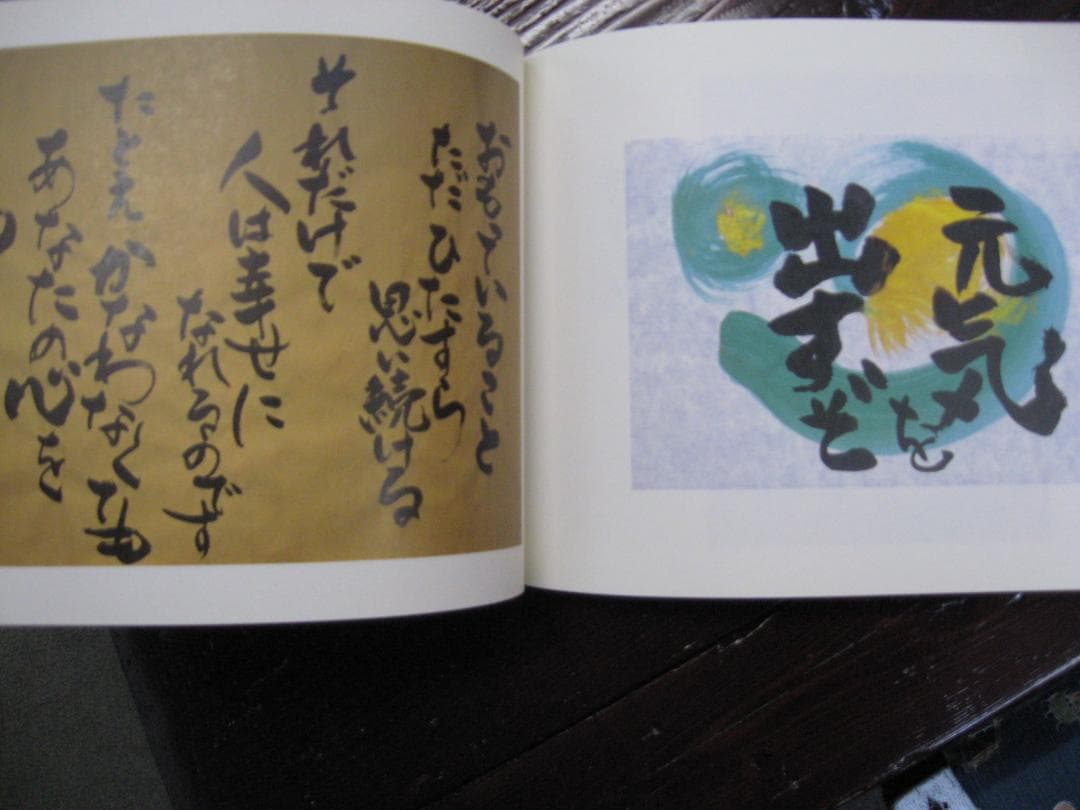 元気を
出すぞ
おもっていること
ただひたすら
思い続ける
それだけで
人は幸せに
なれるのです
たとえかなわなくても
あなたの心を